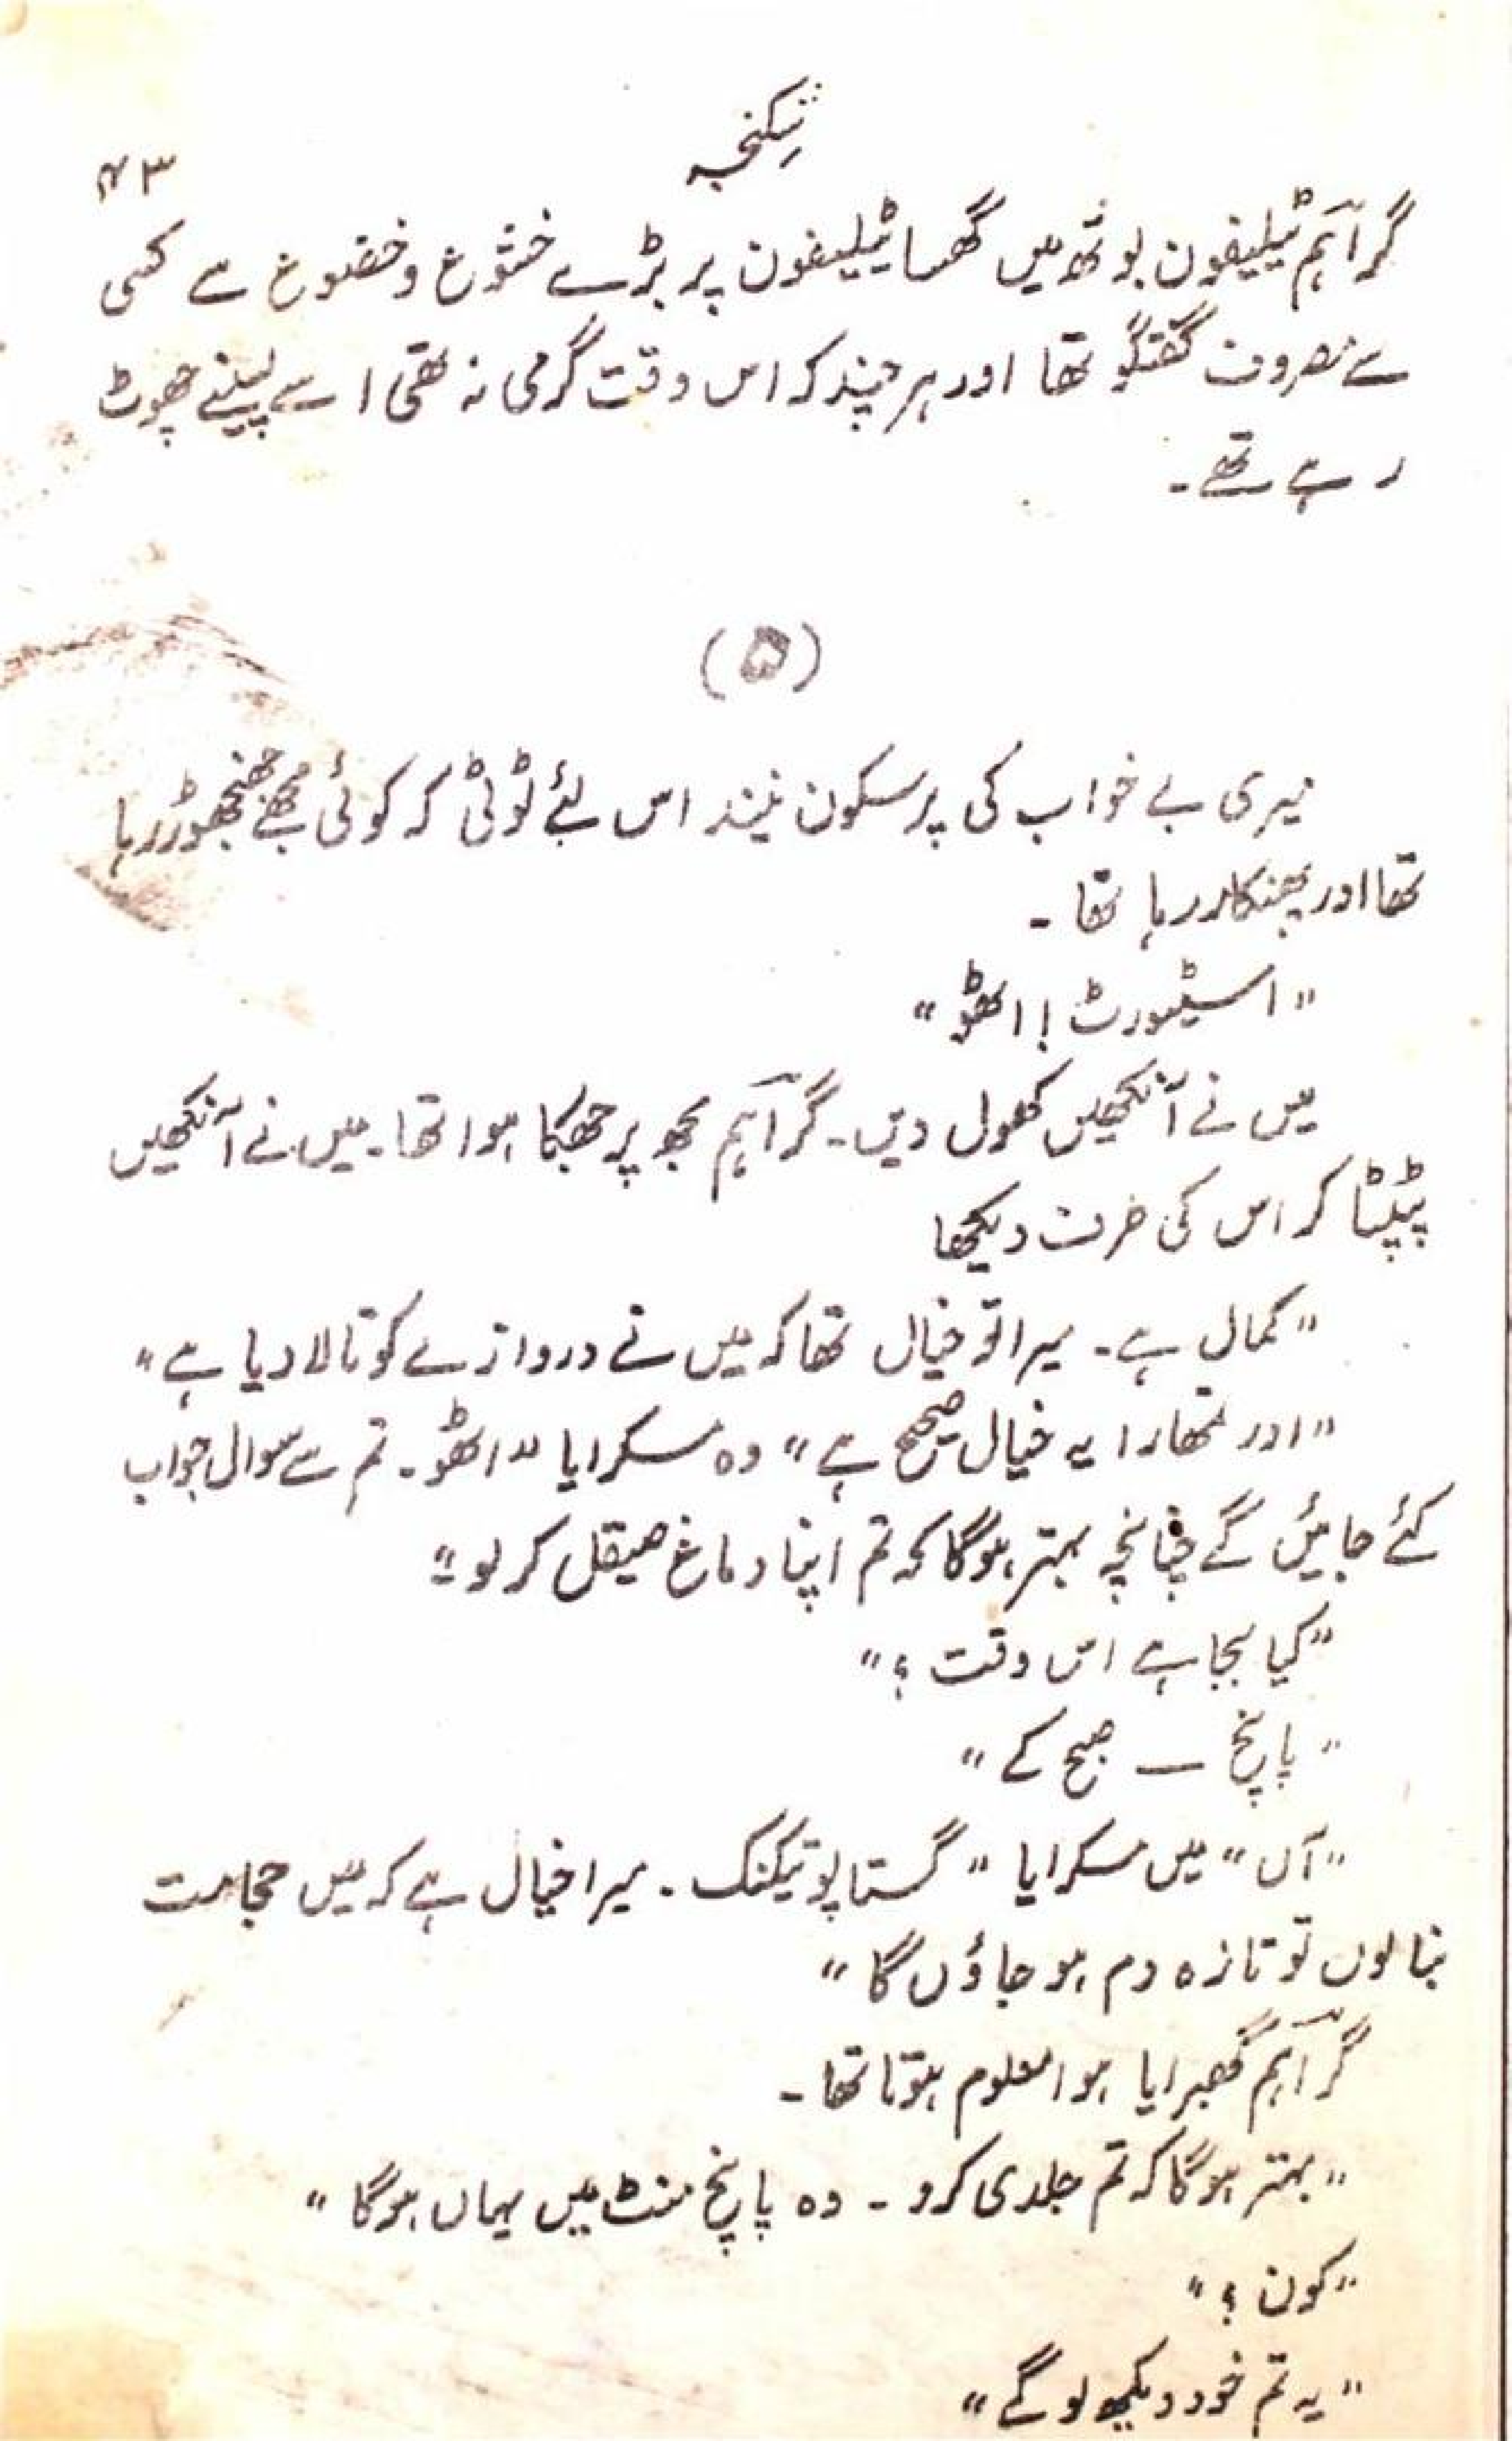 شکنجہ
۴۳
گراہم ٹیلیفون بوتھ میں گھسا ٹیلیفون پر بڑے خشوع و خضوع سے کسی
سے مصروف گفتگو تھا اور ہر چند کہ اس وقت گرمی نہ تھی اسے پسینے چھوٹ
رہے تھے۔
(۵)
میری بے خواب کی پرسکون نیند اس لئے ٹوٹی کہ کوئی مجھے جھنجھوڑ رہا
تھا اور پھنکار رہا تھا۔
"اسٹیورٹ! اٹھو"
میں نے آنکھیں کھول دیں۔ گراہم مجھ پر جھکا ہوا تھا۔ میں نے آنکھیں
پٹپٹا کر اس کی طرف دیکھا
"کمال ہے۔ میرا تو خیال تھا کہ میں نے دروازے کو تالا دیا ہے"
"اور تمھارا یہ خیال صحیح ہے" وہ مسکرایا "اٹھو۔ تم سے سوال جواب
کئے جائیں گے چنانچہ بہتر ہوگا کہ تم اپنا دماغ صیقل کر لو"
"کیا بجا ہے اس وقت؟"
"پانچ — صبح کے"
"آں" میں مسکرایا "گستاپو تیکنک۔ میرا خیال ہے کہ میں حجامت
بنا لوں تو تازہ دم ہو جاؤں گا"
گراہم گھبرایا ہوا معلوم ہوتا تھا۔
"بہتر ہوگا کہ تم جلدی کرو۔ وہ پانچ منٹ میں یہاں ہوگا"
"کون؟"
"یہ تم خود دیکھ لو گے"